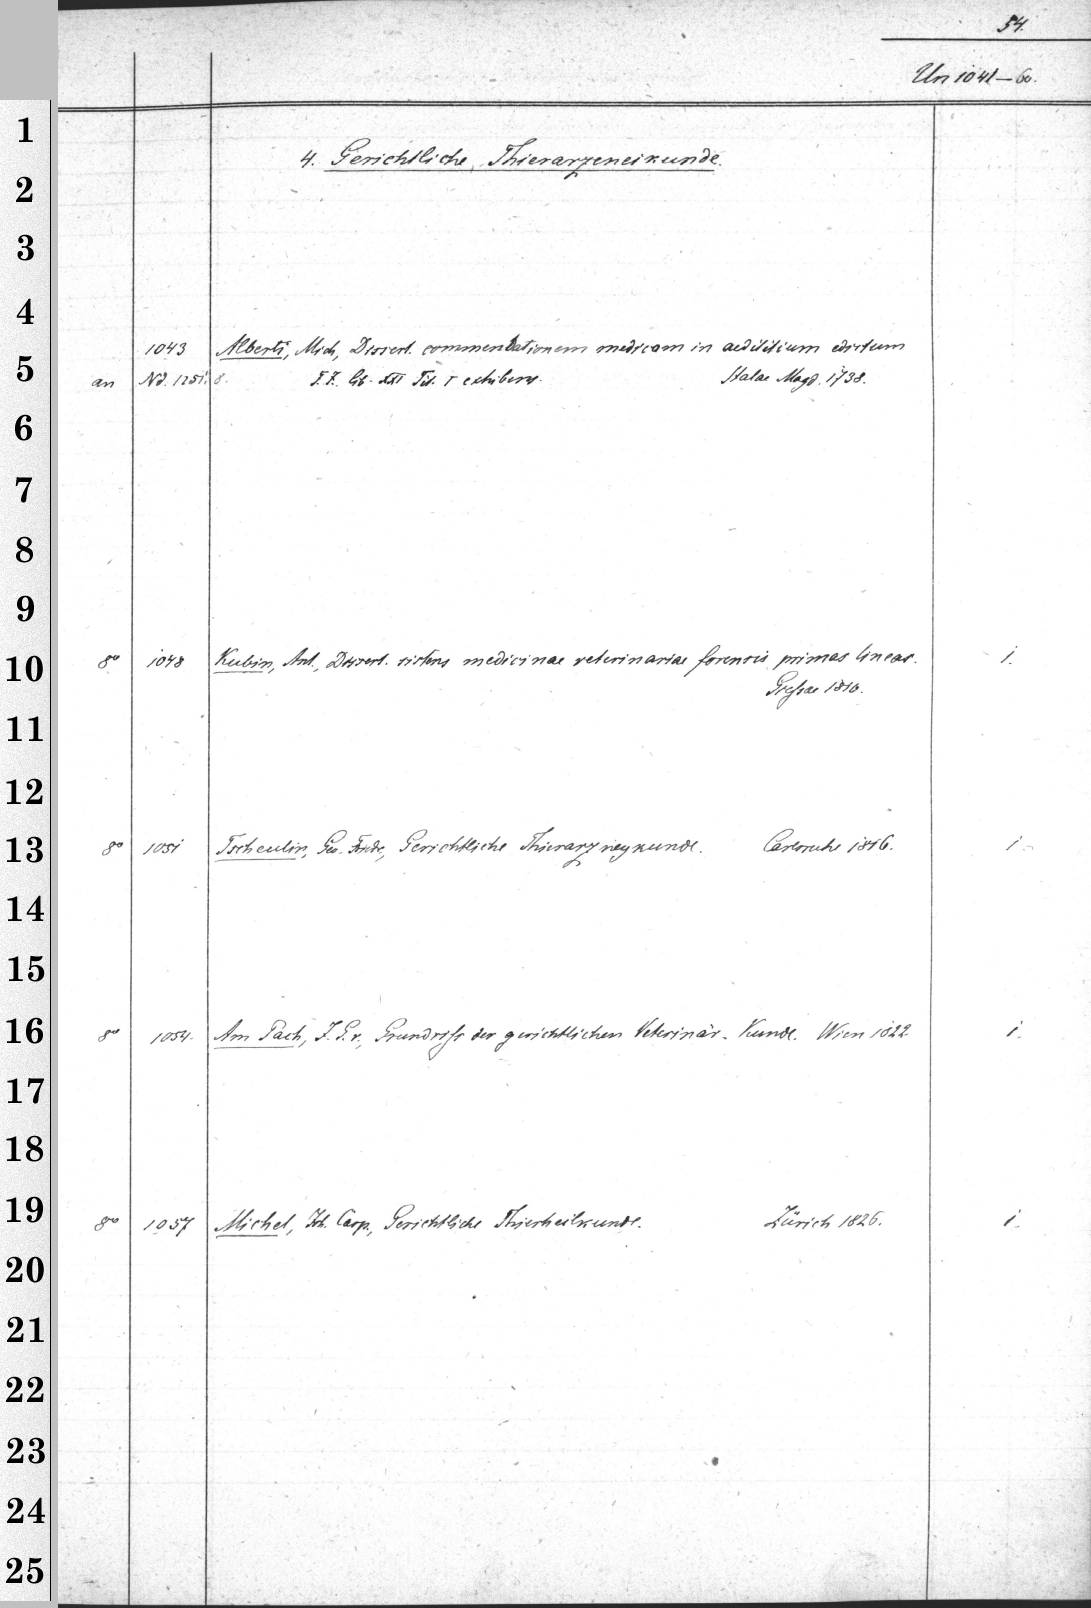 54.
Un 1041–60.
1
4. Gerichtliche Thierarzeneikunde.
2
3
4
1043 Alberti, Mich, Dissert. commentationem medicam in aedilitium edictum
5
an Nd. 1251. 8. F.F. Lib. XXI Tit. I exhibens. Halae Magd. 1738.
6
7
8
9
10
8° 1048 Kubin, Ant., Dissert. sistens medicinae veterinariae forensis primas lineas. 1.
1810.
11
12
13
8° 1051 Tscheulin, Geo. Fride, Gerichtliche Thierarzneykunde. Carlsruhe 1816. 1
14
15
16
8° 1054. Am Pach, J. G. v., Grundriss der gerichtlichen Veterinär-Kunde. Wien 1822 1.
17
18
19
8° 1057 Michel, Joh. Casp., Gerichtliche Thierheilkunde. Zürich 1826. 1.
20
21
22
23
24
25